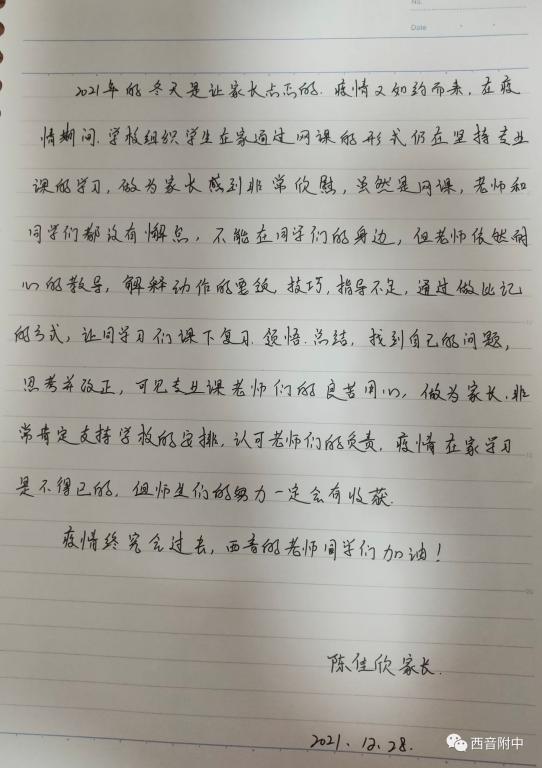 No.
Date
2021年的冬天是让家长忐忑的.疫情又如约而来,在疫
情期间.学校组织学生在家通过网课的形式仍在坚持专业
课的学习,做为家长感到非常欣慰,虽然是网课,老师和
同学们都没有懈怠,不能在同学们的身边,但老师依然耐
心的教导,解释动作的要领,技巧,指导不足,通过做笔记
的方式,让同学习们课下复习.领悟.总结,找到自己的问题,
思考并改正,可见专业课老师们的良苦用心,做为家长.非
常肯定支持学校的安排,认可老师们的负责,疫情在家学习
是不得已的,但师生们的努力一定会有收获.
疫情终究会过去,西音的老师同学们加油!
陈佳欣家长.
2021.12.28.
西音附中